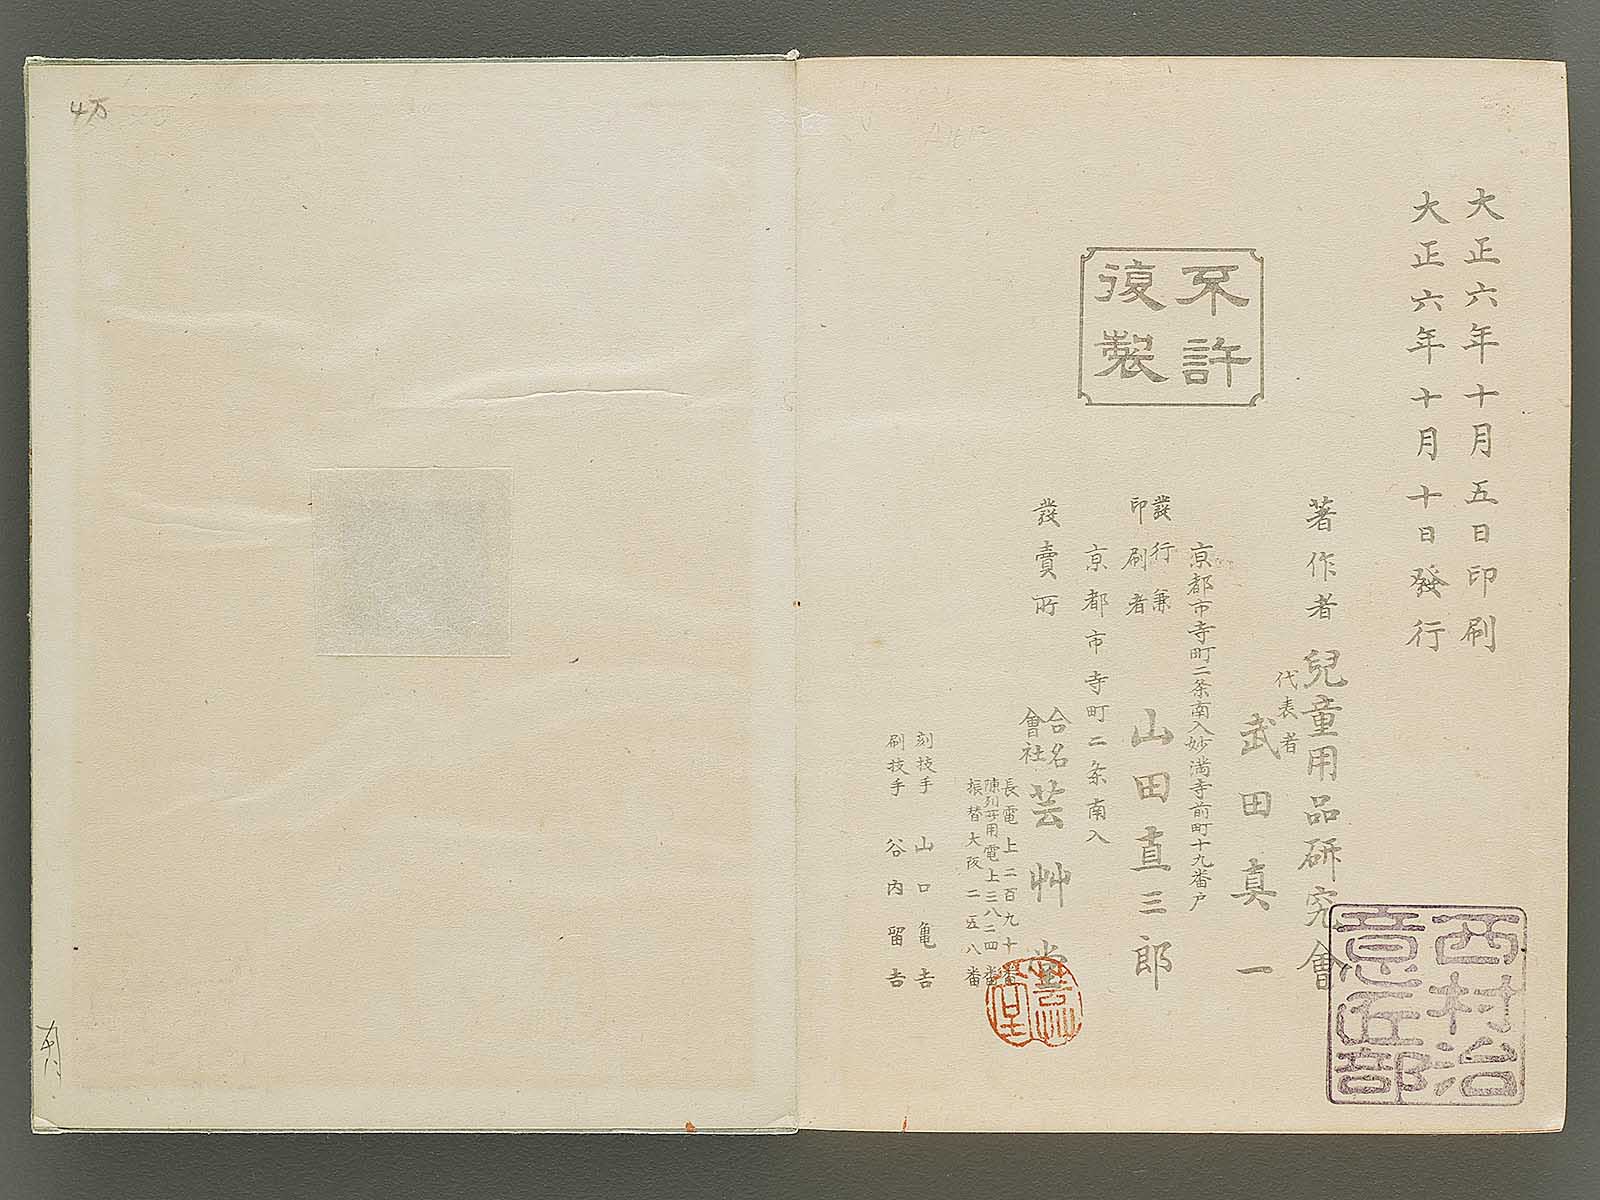 大正六年十月五日印刷
大正六年十月十日發行
不許
復製
著作者 兒童用品研究會
代表者 武田真一
京都市寺町二条南入妙満寺前町十九番戸
發行兼
印刷者 山田直三郎
京都市寺町二条南入
發賣所 合名
會社 芸艸堂
長電上二百九十番
陳列所用電上三八二四番
振替大阪二一五八番
刻技手 山口亀吉
刷技手 谷内留吉
芸艸
堂
西村治
意匠部
4万